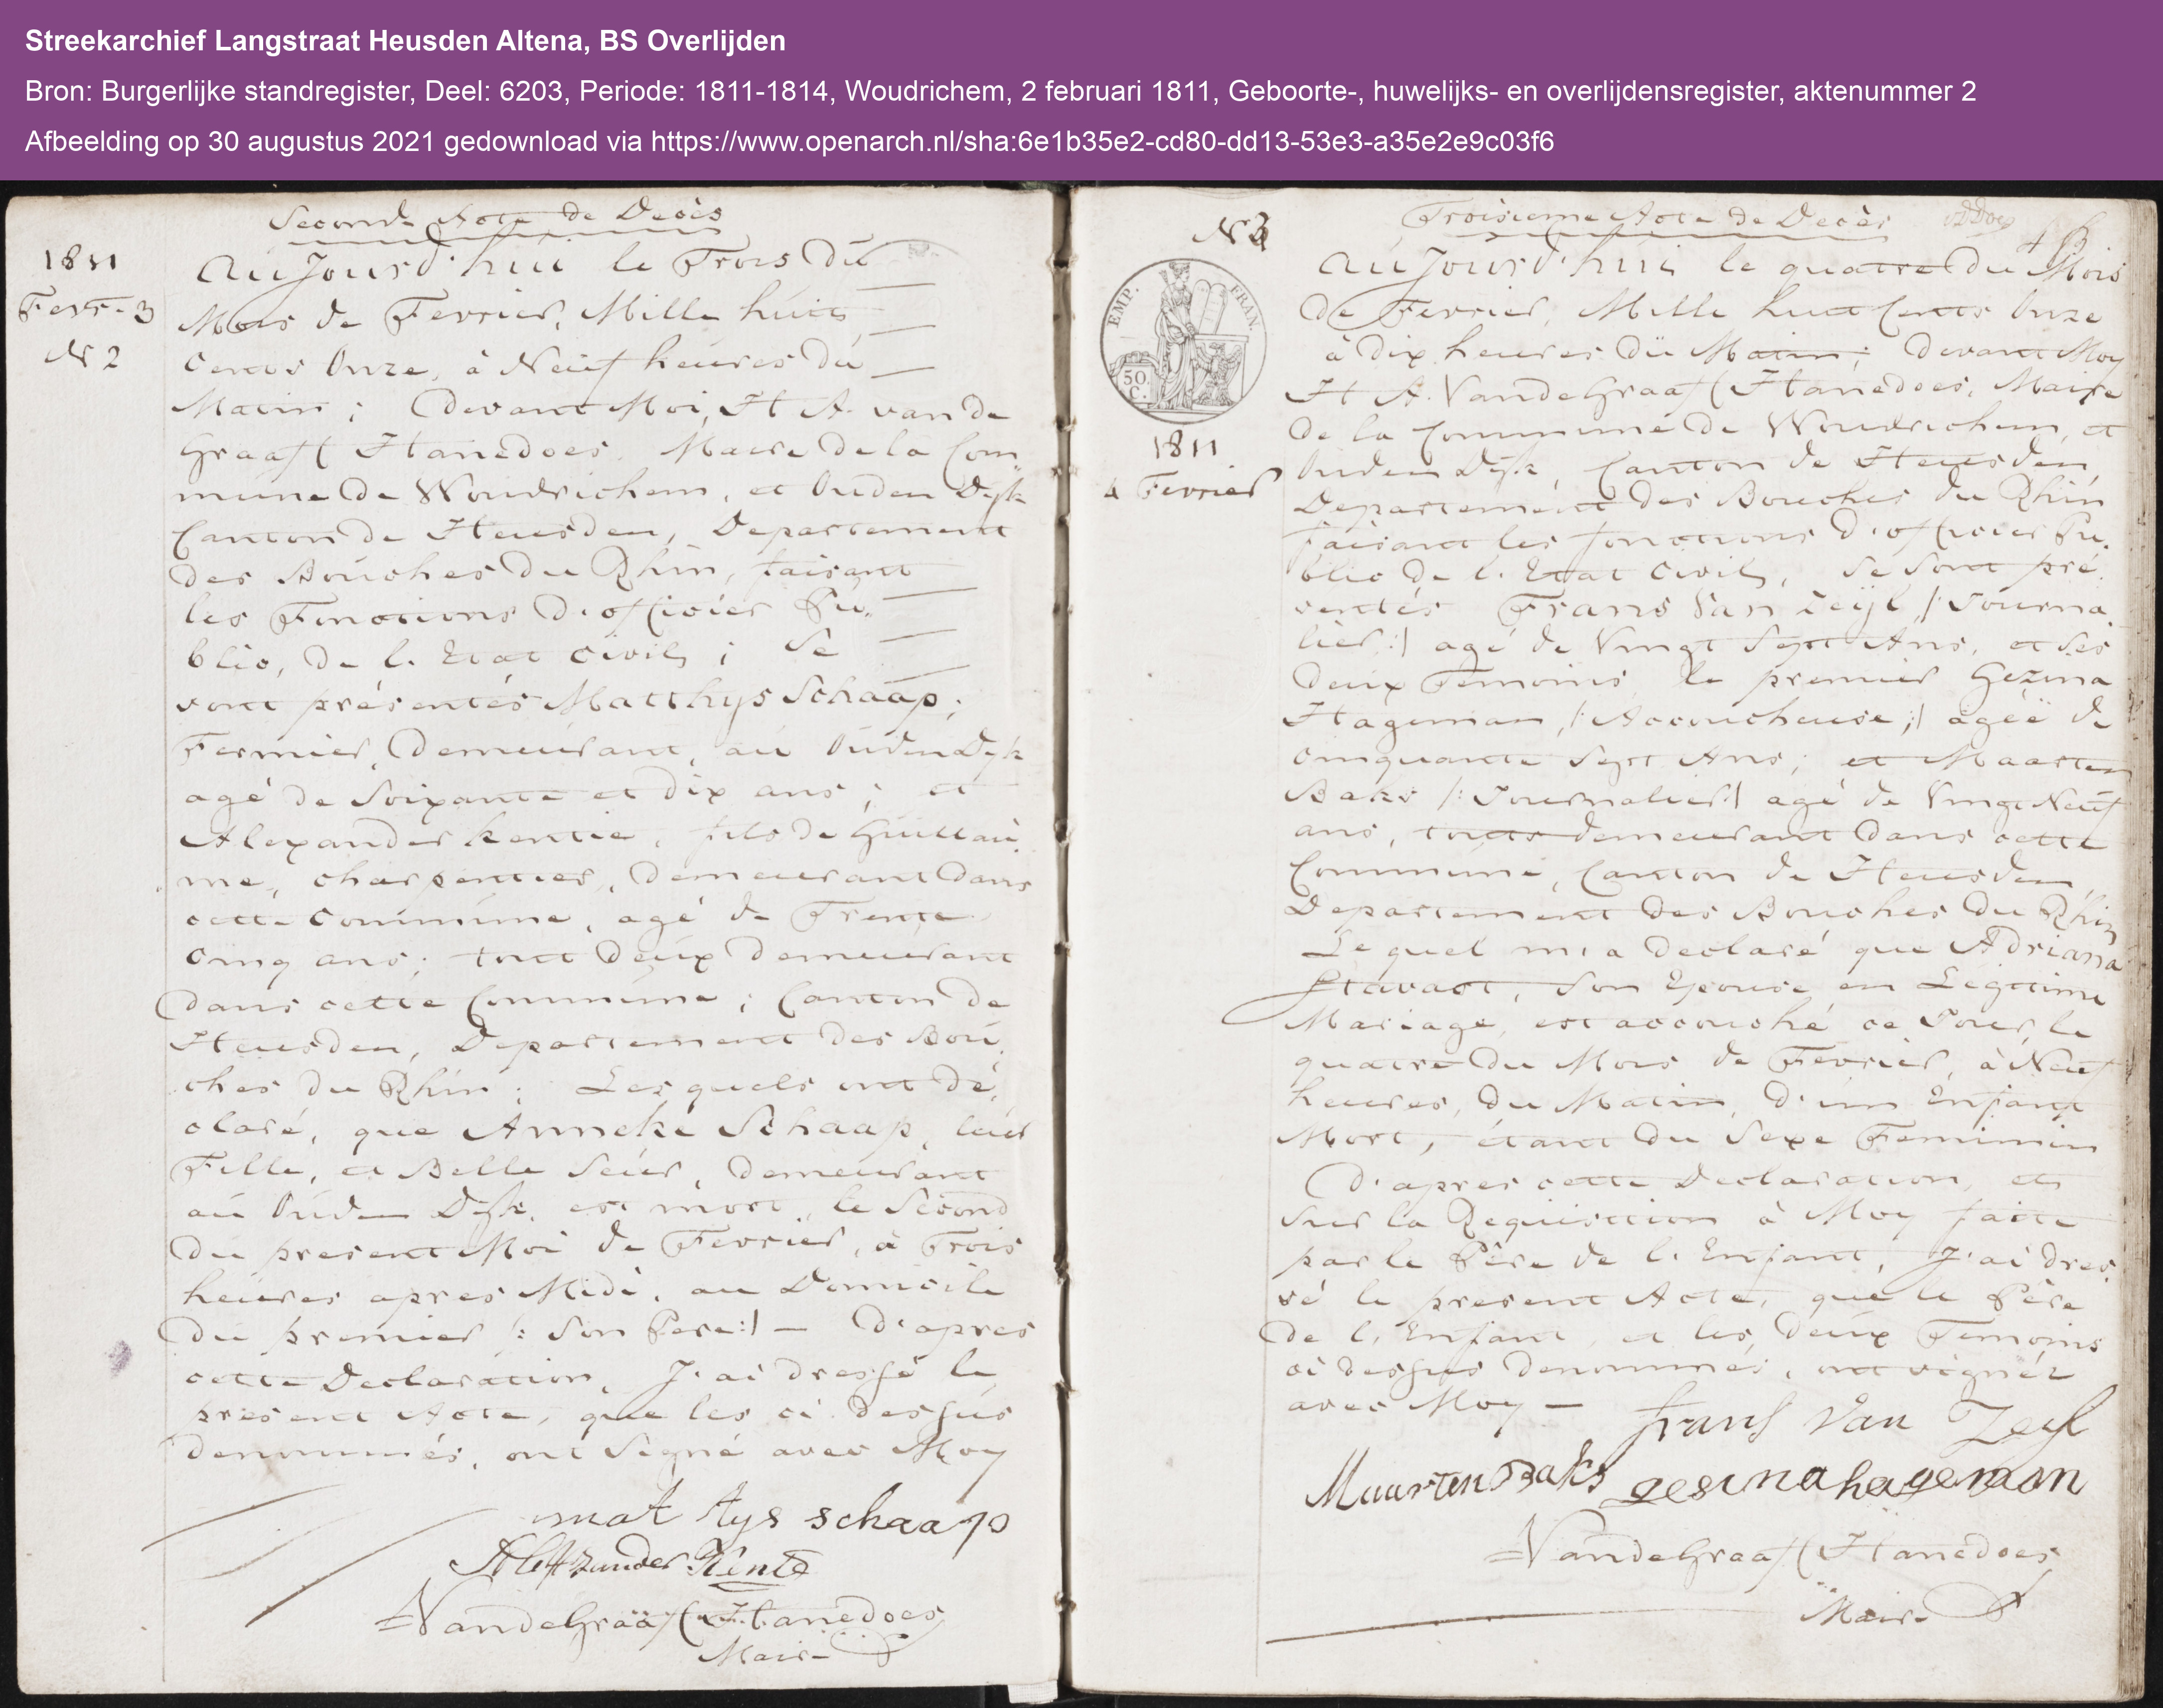 Streekarchief Langstraat Heusden Altena, BS Overlijden
Bron: Burgerlijke standregister, Deel: 6203, Periode: 1811-1814, Woudrichem, 2 februari 1811, Geboorte-, huwelijks- en overlijdensregister, aktenummer 2
Afbeelding op 30 augustus 2021 gedownload via https://www.openarch.nl/sha:6e1b35e2-cd80-dd13-53e3-a35e2e9c03f6
Seconde Acte de Decès
1811
Fevr. 3
N 2
Aujourd'hui le Trois du
Mois de Fevrier, Mille huit
Cents Onze, à Neuf heures du
Matin; Devant Moi, H A. van de
Graaff Hanedoes, Maire de la Com
mune de Woudrichem, et Ouden Dyk
Canton de Heusden, Departement
des Bouches du Rhin, faisant
les Fonctions d'officier Pu„
blic, de l'Etat Civil; Se
sont présentés Matthys Schaap;
Fermier, Demeurant, au Ouden Dyk
agé de Soixante et dix ans; et
Alexander kentie, fils de Guillau
me, charpentier, Demeurant Dans
cette Commune, agé de Trente
Cinq ans; tout Deux Demeurant
Dans cette Commune; Canton de
Heusden, Departement des Bou
ches du Rhin; Lesquels ont dé
claré, que Anneke Schaap, leur
Fille, et Belle Seur, Demeurant
au Ouden Dyk, est mort, le Second
Du present Moi de Fevrier, à Trois
heures apres Midi, au Domicile
Du premier /: Son Pere:/ — D'apres
cette Declaration, J'ai dressé le
present Acte, que les ci dessus
denommés, ont Signé avec Moy
mat tys schaap
Alexander Kentie
VandeGraaff Hanedoes
Maire
N 3
Troisieme Acte de Decès
EMP. FRAN.
50.
C.
1811
4 Fevrier
Aujourd'hui le quatre Du Mois
De Fevrier, Mille huit Cents Onze
à dix heures Du Matin; Devant Moy
H A. VandeGraaff Hanedoes, Maire
De la Commune De Woudrichem, et
Ouden Dyk, Canton de Heusden,
Departement des Bouches du Rhin
faisant les fonctions d'officier Pu.
blic de l'Etat Civil, Se Sont pré
sentés Frans Van Zeijl /: Journa
lier:/ agé de Vingt Sept Ans, et Ses
Deux Temoins, le premier Gezina
Hageman, /: Accoucheuse;/ agéë de
Cinquante Sept Ans; et Maarten
Baks /: Journalier:/ agé de Vingt Neuf
ans, touts demeurant Dans cette
Commune, Canton de Heusden,
Departement des Bouches Du Rhin
Le quel m'a Declaré que Adriana
son Epouse en Legitime
Mariage, est accouché ce Jour, le
quatre Du Mois de Fevrier, à Neuf
heures, Du Matin, D'un Enfant
Mort, étant Du Sexe Feminin
D'apres cette Declaration, et
Sur la Requisition à Moy faite
par le Père de l'Enfant, J'ai dres
sé le present Acte, que le Père
De l'Enfant, et les Deux Temoins
ci dessus denommés, ont signéz
avec Moy —
frans Van Zeyl
Maarten Baks gesina hageman
VandeGraaff Hanedoes
Maire